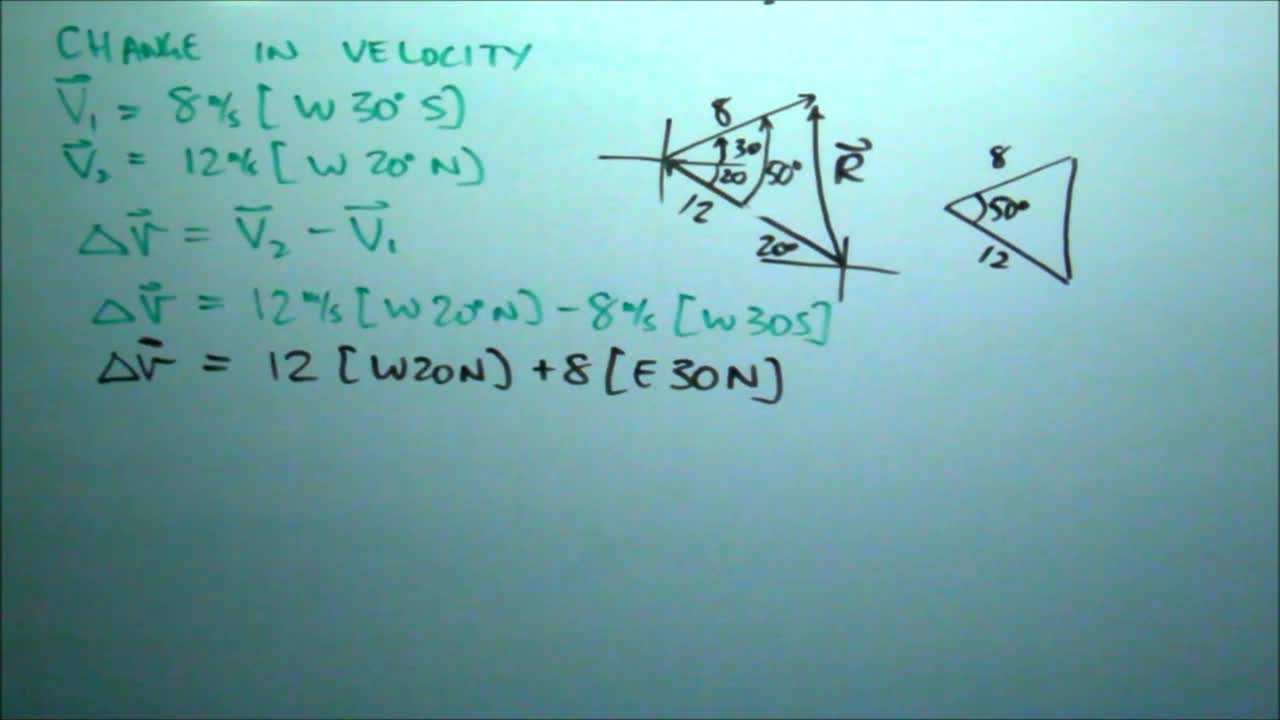 CHANGE IN VELOCITY
V⃗₁ = 8 m/s [W 30° S]
V⃗₂ = 12 m/s [W 20° N]
ΔV⃗ = V⃗₂ - V⃗₁
ΔV⃗ = 12 m/s [W 20° N] - 8 m/s [W 30 S]
ΔV⃗ = 12 [W 20 N] + 8 [E 30 N]
8
30
20
50°
R⃗
12
20°
8
50°
12